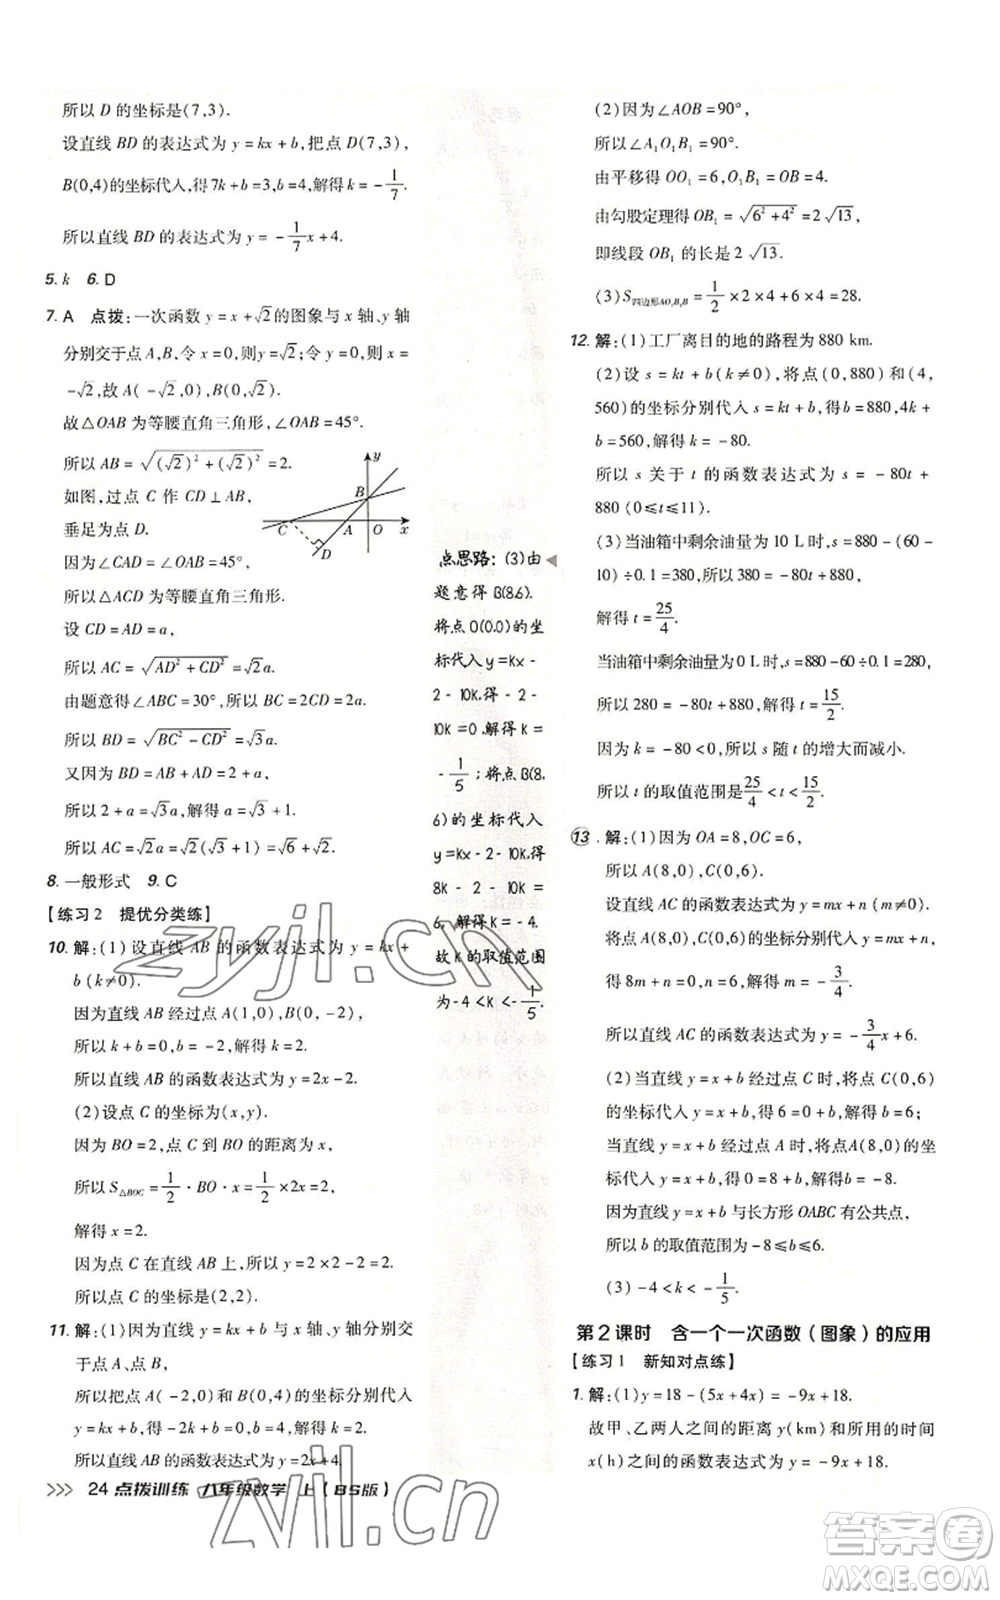 所以 D 的坐标是(7,3).
设直线 BD 的表达式为 y = kx + b,把点 D(7,3),
B(0,4)的坐标代入,得 7k + b = 3,b = 4,解得 k = -1/7,
所以直线 BD 的表达式为 y = -1/7x + 4.
5. k 6. D
7. A 点拨:一次函数 y = x + √2的图象与 x 轴、y 轴
分别交于点 A,B,令 x = 0,则 y = √2,令 y = 0,则 x =
-√2,故 A(-√2,0),B(0,√2).
故△OAB 为等腰直角三角形,∠OAB = 45°.
所以 AB = √((√2)² + (√2)²) = 2.
如图,过点 C 作 CD⊥AB,
垂足为点 D.
因为∠CAD = ∠OAB = 45°,
所以△ACD 为等腰直角三角形.
设 CD = AD = a,
所以 AC = √(AD² + CD²) = √2a.
由题意得∠ABC = 30°,所以 BC = 2CD = 2a.
所以 BD = √(BC² - CD²) = √3a.
又因为 BD = AB + AD = 2 + a,
所以 2 + a = √3a,解得 a = √3 + 1.
所以 AC = √2a = √2(√3 + 1) = √6 + √2.
8. 一般形式 9. C
【练习2 提优分类练】
10. 解:(1)设直线 AB 的函数表达式为 y = kx +
b(k≠0).
因为直线 AB 经过点 A(1,0),B(0,-2),
所以 k + b = 0,b = -2,解得 k = 2.
所以直线 AB 的函数表达式为 y = 2x - 2.
(2)设点 C 的坐标为(x,y).
因为 BO = 2,点 C 到 BO 的距离为 x,
所以 S△BOC = 1/2 · BO · x = 1/2 × 2x = 2,
解得 x = 2.
因为点 C 在直线 AB 上,所以 y = 2×2 - 2 = 2.
所以点 C 的坐标是(2,2).
11. 解:(1)因为直线 y = kx + b 与 x 轴、y 轴分别交
于点 A(-2,0)、点 B(0,4),
所以把点 A(-2,0)和 B(0,4)的坐标分别代入
y = kx + b,得 -2k + b = 0,b = 4,解得 k = 2.
所以直线 AB 的函数表达式为 y = 2x + 4.
y
B
C A O x
D
点思路:(3)由
题意得 B(8,6).
将点 O(0,0)的坐
标代入 y = kx -
2 - 10k,得 - 2 -
10k = 0,解得 k =
-1/5;将点 B(8,
6)的坐标代入
y = kx - 2 - 10k,得
8k - 2 - 10k =
6,解得 k = - 4.
故 k 的取值范围
为 -4 < k < -1/5.
(2)因为∠AOB = 90°,
所以∠A₁O₁B₁ = 90°.
由平移得 OO₁ = 6,O₁B₁ = OB = 4.
由勾股定理得 OB₁ = √(6² + 4²) = 2√13,
即线段 OB₁ 的长是 2√13.
(3)S四边形AO₁B₁B = 1/2 × 2 × 4 + 6 × 4 = 28.
12. 解:(1)工厂离目的地的路程为 880 km.
(2)设 s = kt + b(k≠0),将点(0,880)和(4,
560)的坐标分别代入 s = kt + b,得 b = 880,4k +
b = 560,解得 k = -80.
所以 s 关于 t 的函数表达式为 s = -80t +
880(0≤t≤11).
(3)当油箱中剩余油量为 10 L 时,s = 880 - (60 -
10)÷0.1 = 380,所以 380 = -80t + 880,
解得 t = 25/4.
当油箱中剩余油量为 0 L 时,s = 880 - 60÷0.1 = 280,
所以 280 = -80t + 880,解得 t = 15/2.
因为 k = -80 < 0,所以 s 随 t 的增大而减小.
所以 t 的取值范围是 25/4 < t < 15/2.
13. 解:(1)因为 OA = 8,OC = 6,
所以 A(8,0),C(0,6).
设直线 AC 的函数表达式为 y = mx + n(m≠0).
将点 A(8,0),C(0,6)的坐标分别代入 y = mx + n,
得 8m + n = 0,n = 6,解得 m = -3/4.
所以直线 AC 的函数表达式为 y = -3/4x + 6.
(2)当直线 y = x + b 经过点 C 时,将点 C(0,6)
的坐标代入 y = x + b,得 6 = 0 + b,解得 b = 6;
当直线 y = x + b 经过点 A 时,将点A(8,0)的坐
标代入 y = x + b,得 0 = 8 + b,解得 b = -8.
因为直线 y = x + b 与长方形 OABC 有公共点,
所以 b 的取值范围为 -8≤b≤6.
(3) -4 < k < -1/5.
第2课时 含一个一次函数(图象)的应用
【练习1 新知对点练】
1. 解:(1)y = 18 - (5x + 4x) = -9x + 18.
故甲、乙两人之间的距离 y(km)和所用的时间
x(h)之间的函数表达式为 y = -9x + 18.
>>> 24 点拨训练 八年级数学 上(BS版)
zyjl.cn
zyjl.cn
答案圈
MXQE.COM